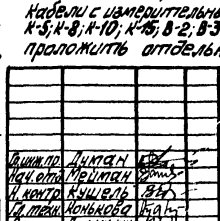 Кабели с измерительны
К-5; К-8; К-10; К-15; В-2; В-3
проложить отдельн
Гл.инж.пр. Дуктан
Нач.отд. Мейтан
Н.контр. Кушель
Гл.техн. Конькова